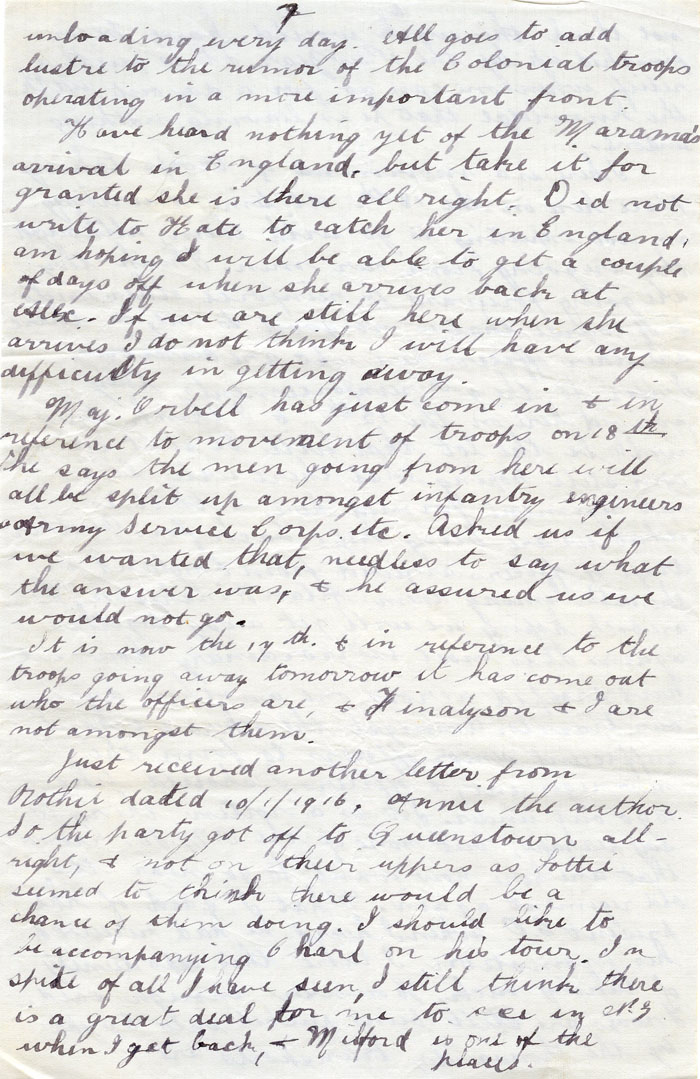 7
unloading every day. All goes to add
lustre to the rumor of the Colonial troops
operating in a more important front.
Have heard nothing yet of the Marama's
arrival in England, but take it for
granted she is there all right. Did not
write to Kate to catch her in England,
am hoping I will be able to get a couple
of days off when she arrives back at
Alex. If we are still here when she
arrives I do not think I will have any
difficulty in getting away.
Maj. Orbell has just come in & in
reference to movement of troops on 18th
he says the men going from here will
all be split up amongst infantry engineers
Army Service Corps. etc. Asked us if
we wanted that, needless to say what
the answer was, & he assured us we
would not go.
It is now the 17th. & in reference to the
troops going away tomorrow it has come out
who the officers are, & Finalyson & I are
not amongst them.
Just received another letter from
dated 10/1/1916, Annie the author.
So the party got off to Queenstown all-
right, & not on their uppers as Lottie
seemed to think there would be a
chance of them doing. I should like to
be accompanying Charl on his tour. In
spite of all I have seen, I still think there
is a great deal for me to see in NZ
when I get back, & Milford is one of the
places.